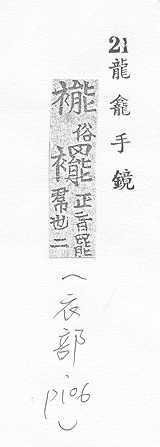 21
龍龕手鏡
褦俗襬正音罷帬也二
(衣部 p106)